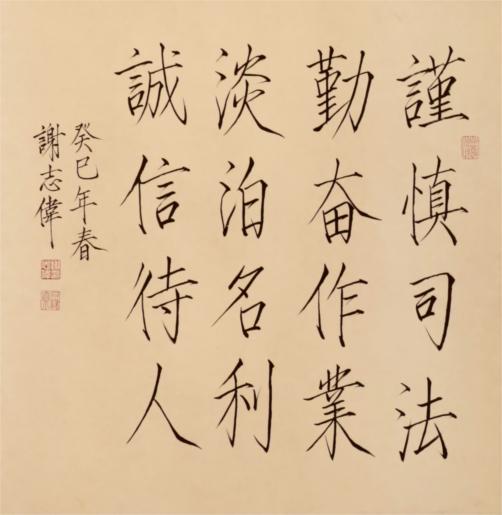 謹慎司法
勤奋作業
淡泊名利
誠信待人
癸巳年春
謝志偉